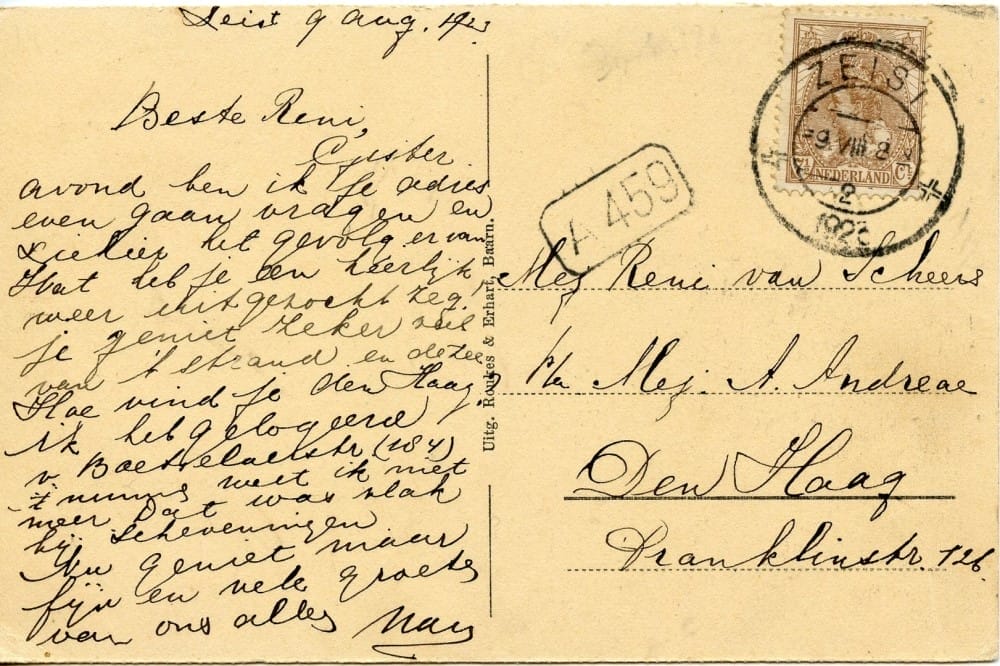 Zeist 9 Aug. 1923
Beste Reni,
Gister
avond ben ik je adres
even gaan vragen en
ziehier het gevolg ervan
Wat heb je een heerlijk
weer uitgezocht zeg!
je geniet zeker veel
van 't strand en de zee
Hoe vind je den Haag,
ik heb gelogeerd
v. Boetzelaerstr (184)
't nummer weet ik niet
meer Dat was vlak
bij Scheveningen
Nu geniet maar
fijn en vele groeten
van ons allen
Uitg. Roukes & Erhart, Baarn.
A 459
ZEIST
9 VIII 8
1923
NEDERLAND
Mej Reni van Scheers
p/a Mej. A. Andreae
Den Haag
Franklinstr. 126.